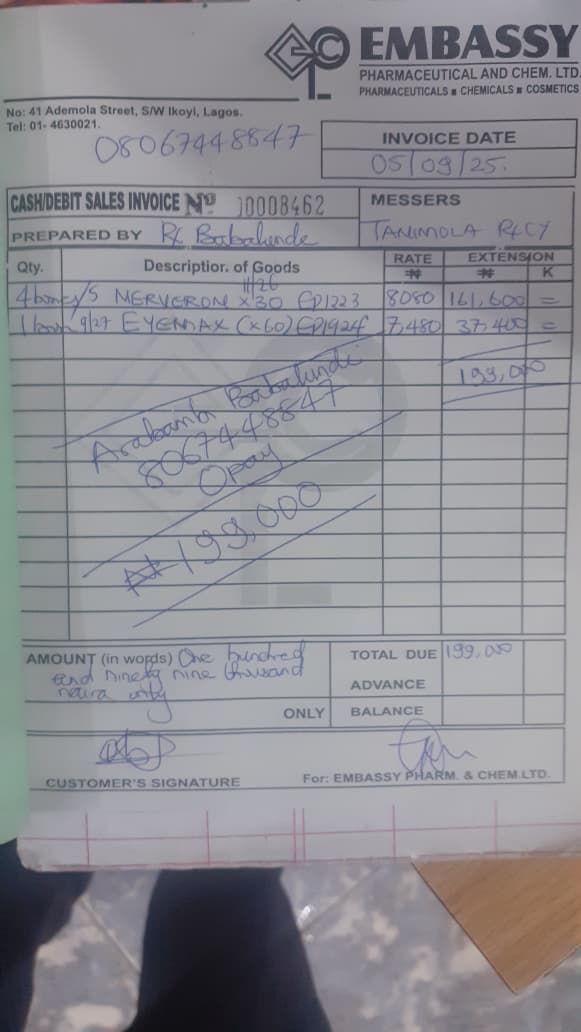 EMBASSY
PHARMACEUTICAL AND CHEM. LTD.
PHARMACEUTICALS ■ CHEMICALS ■ COSMETICS
No: 41 Ademola Street, S/W Ikoyi, Lagos.
Tel: 01- 4630021.
08067448847
INVOICE DATE
05/09/25.
CASH/DEBIT SALES INVOICE Nº 0008462
MESSERS
PREPARED BY Babatunde
TANIMOLA
Qty. Description of Goods RATE EXTENSION
₦ ₦ K
11/26
4 NERVERON x30 EP1223 8080 161,600 =
1 9/27 EYEMAX (x60) EP1924 7,480 37,400 =
199,000
Babatunde
8067448847
Opay
₦199,000
AMOUNT (in words) One hundred
and ninety nine thousand
naira only
ONLY
TOTAL DUE 199,000
ADVANCE
BALANCE
CUSTOMER'S SIGNATURE
For: EMBASSY PHARM. & CHEM.LTD.